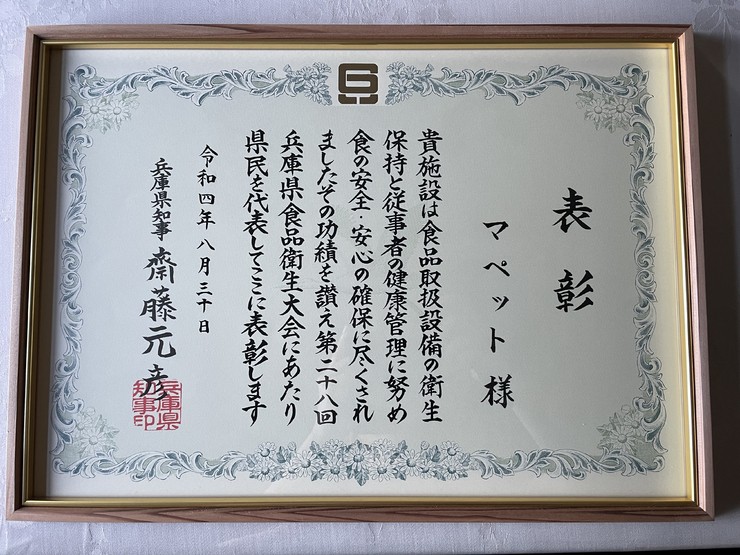 表彰
マペット様
貴施設は食品取扱設備の衛生
保持と従事者の健康管理に努め
食の安全・安心の確保に尽くされ
ましたその功績を讃え第二十八回
兵庫県食品衛生大会にあたり
県民を代表してここに表彰します
令和四年八月三十日
兵庫県知事 齋藤元彦
兵庫県
知事印